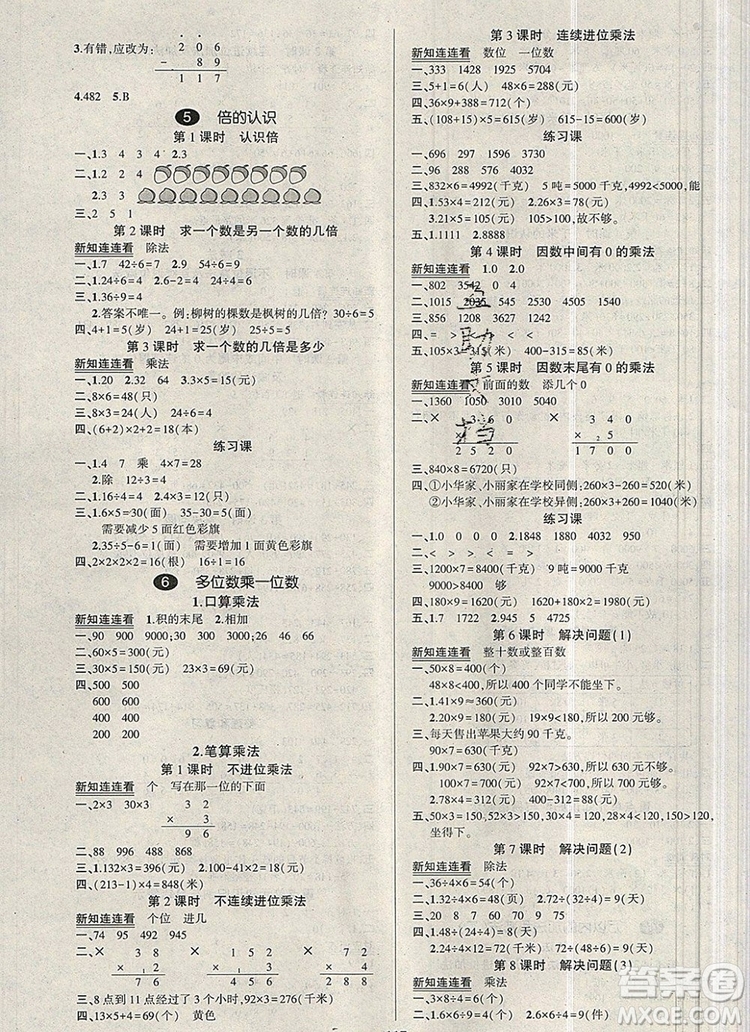 3.有错,应改为:
2 0 6
- 8 9
1 1 7
4.482 5.B
5 倍的认识
第 1 课时 认识倍
一、1.3 4 3 4 2.3
2.3
三、2 5 1
第 2 课时 求一个数是另一个数的几倍
新知连连看 除法
一、1.7 42÷6=7 2.9 54÷6=9
二、1.24÷6=4 2.6-2=4 24÷4=6
三、1.36÷9=4
2.答案不唯一。例:柳树的棵数是枫树的几倍? 30÷6=5
四、4+1=5(岁) 24+1=25(岁) 25÷5=5
第 3 课时 求一个数的几倍是多少
新知连连看 乘法
一、1.20 2.32 3.3×5=15(元)
二、8×6=48(只)
三、8×3=24(人) 24+8=32(人)
四、(6+2)×2+2=18(本)
练习课
一、1.4 7 乘 4×7=28
2.除 12÷3=4
二、1.16÷4=4 2.3×9=27
三、1.6×5=30(面) 35-30=5(面)
需要减少 5 面红色彩旗
2.35÷5-6=1(面) 需要增加 1 面蓝色彩旗
四、2×2×2×2=16(根) 16×2=32(根)
6 多位数乘一位数
1.口算乘法
新知连连看 1.积的末尾 2.相加
一、90 900 9000;30 96;6 20 26 46
二、60×5=300(元)
三、30×5=150(元) 23×3=69(元)
四、500 500
600 600
400 400
200 200
2.笔算乘法
第 1 课时 不进位乘法
新知连连看 个 写在那一位的下面
一、2×3 30×3
3 2
× 3
9 6
二、88 996 488 888
三、1.122×3=366(元) 2.100-41×2=18(元)
四、(213-1)×4=848(米)
第 2 课时 不连续进位乘法
新知连连看 个位 进几
一、74 95 492 945
二、× × ×
3 8
× 2
7 6
1 5 2
× 3
4 5 6
7 2
× 4
2 8 8
三、8 点到 11 点经过了 3 个小时,92×3=276(元)
四、164÷4=41 黄色
第 3 课时 连续进位乘法
新知连连看 数位 一位数
一、333 1428 1925 5704
三、5+1=6(人) 135×6=810(元)
四、36×9+388=712(个)
五、(108+15)×5=615(岁) 615-15=600(岁)
练习课
一、696 297 1100 3150
二、288 308 900 3824
三、832×6=4992(千克) 5 吨=5000(千克) 4992<5000,能。
四、1.53×4=212(元) 2.6×9×4=216(元)
3.21×5=105(元) 105>100,故不够。
五、1.1111 2.8888
第 4 课时 因数中间有 0 的乘法
新知连连看 1.0 2.0
一、802 3542 0 4
二、1015 2035 945 0
三、856 1208 3627 3636
四、= > < = < >
五、105×3=315(米) 400-315=85(米)
第 5 课时 因数末尾有 0 的乘法
新知连连看 前面的数 添几个 0
一、1360 1050 3010 4000
二、× ×
3 6 0
× 7
2 5 2 0
3 4 0
× 5
1 7 0 0
三、840×8=6720(只)
四、①小华家、小丽家在学校同侧:260×3-260=520(米)
②小华家、小丽家在学校异侧:260×3+260=1040(米)
练习课
一、1.0 0 1000 2.1848 4040 950
二、< > < > > =
三、1200×7=8400(千克) 9 吨=9000 千克
9000>8400 能运完
四、1620÷2=810(元) 1620+810=2430(元)
五、1.7 7722 2.945 4 5
第 6 课时 解决问题(1)
新知连连看 整十数或整百数
一、50×8=400(个)
48×8<400,所以 400 个同学不能坐下。
二、1.41×9≈360(元)
2.20×9=180(元) 19×9<180,所以 180 元够。
三、每天售出苹果大约 90 千克。
90×7=630(千克)
四、1.90×7=630(元) 89×7<630,所以 600 元不够。
2.78×4≈320(元) 312÷4=78(元)
五、50×3=150,52×3>150,50×3=150,49×3<150,
坐得下。
第 7 课时 解决问题(2)
新知连连看 除法
一、36÷4×6=54(个) 2.72÷(32÷4)=9(天)
二、20 8 7 60 75 9
三、1.24÷3×9=72(元) 2.24÷4×7=42(元)
四、2.24÷4×12=72(元) 72÷(48÷6)=9(天)
第 8 课时 解决问题(3)
新知连连看 乘法
一、3×8÷4=6(个)
二、1.6×6÷9=4(元) 2.6×6÷9=4(件)